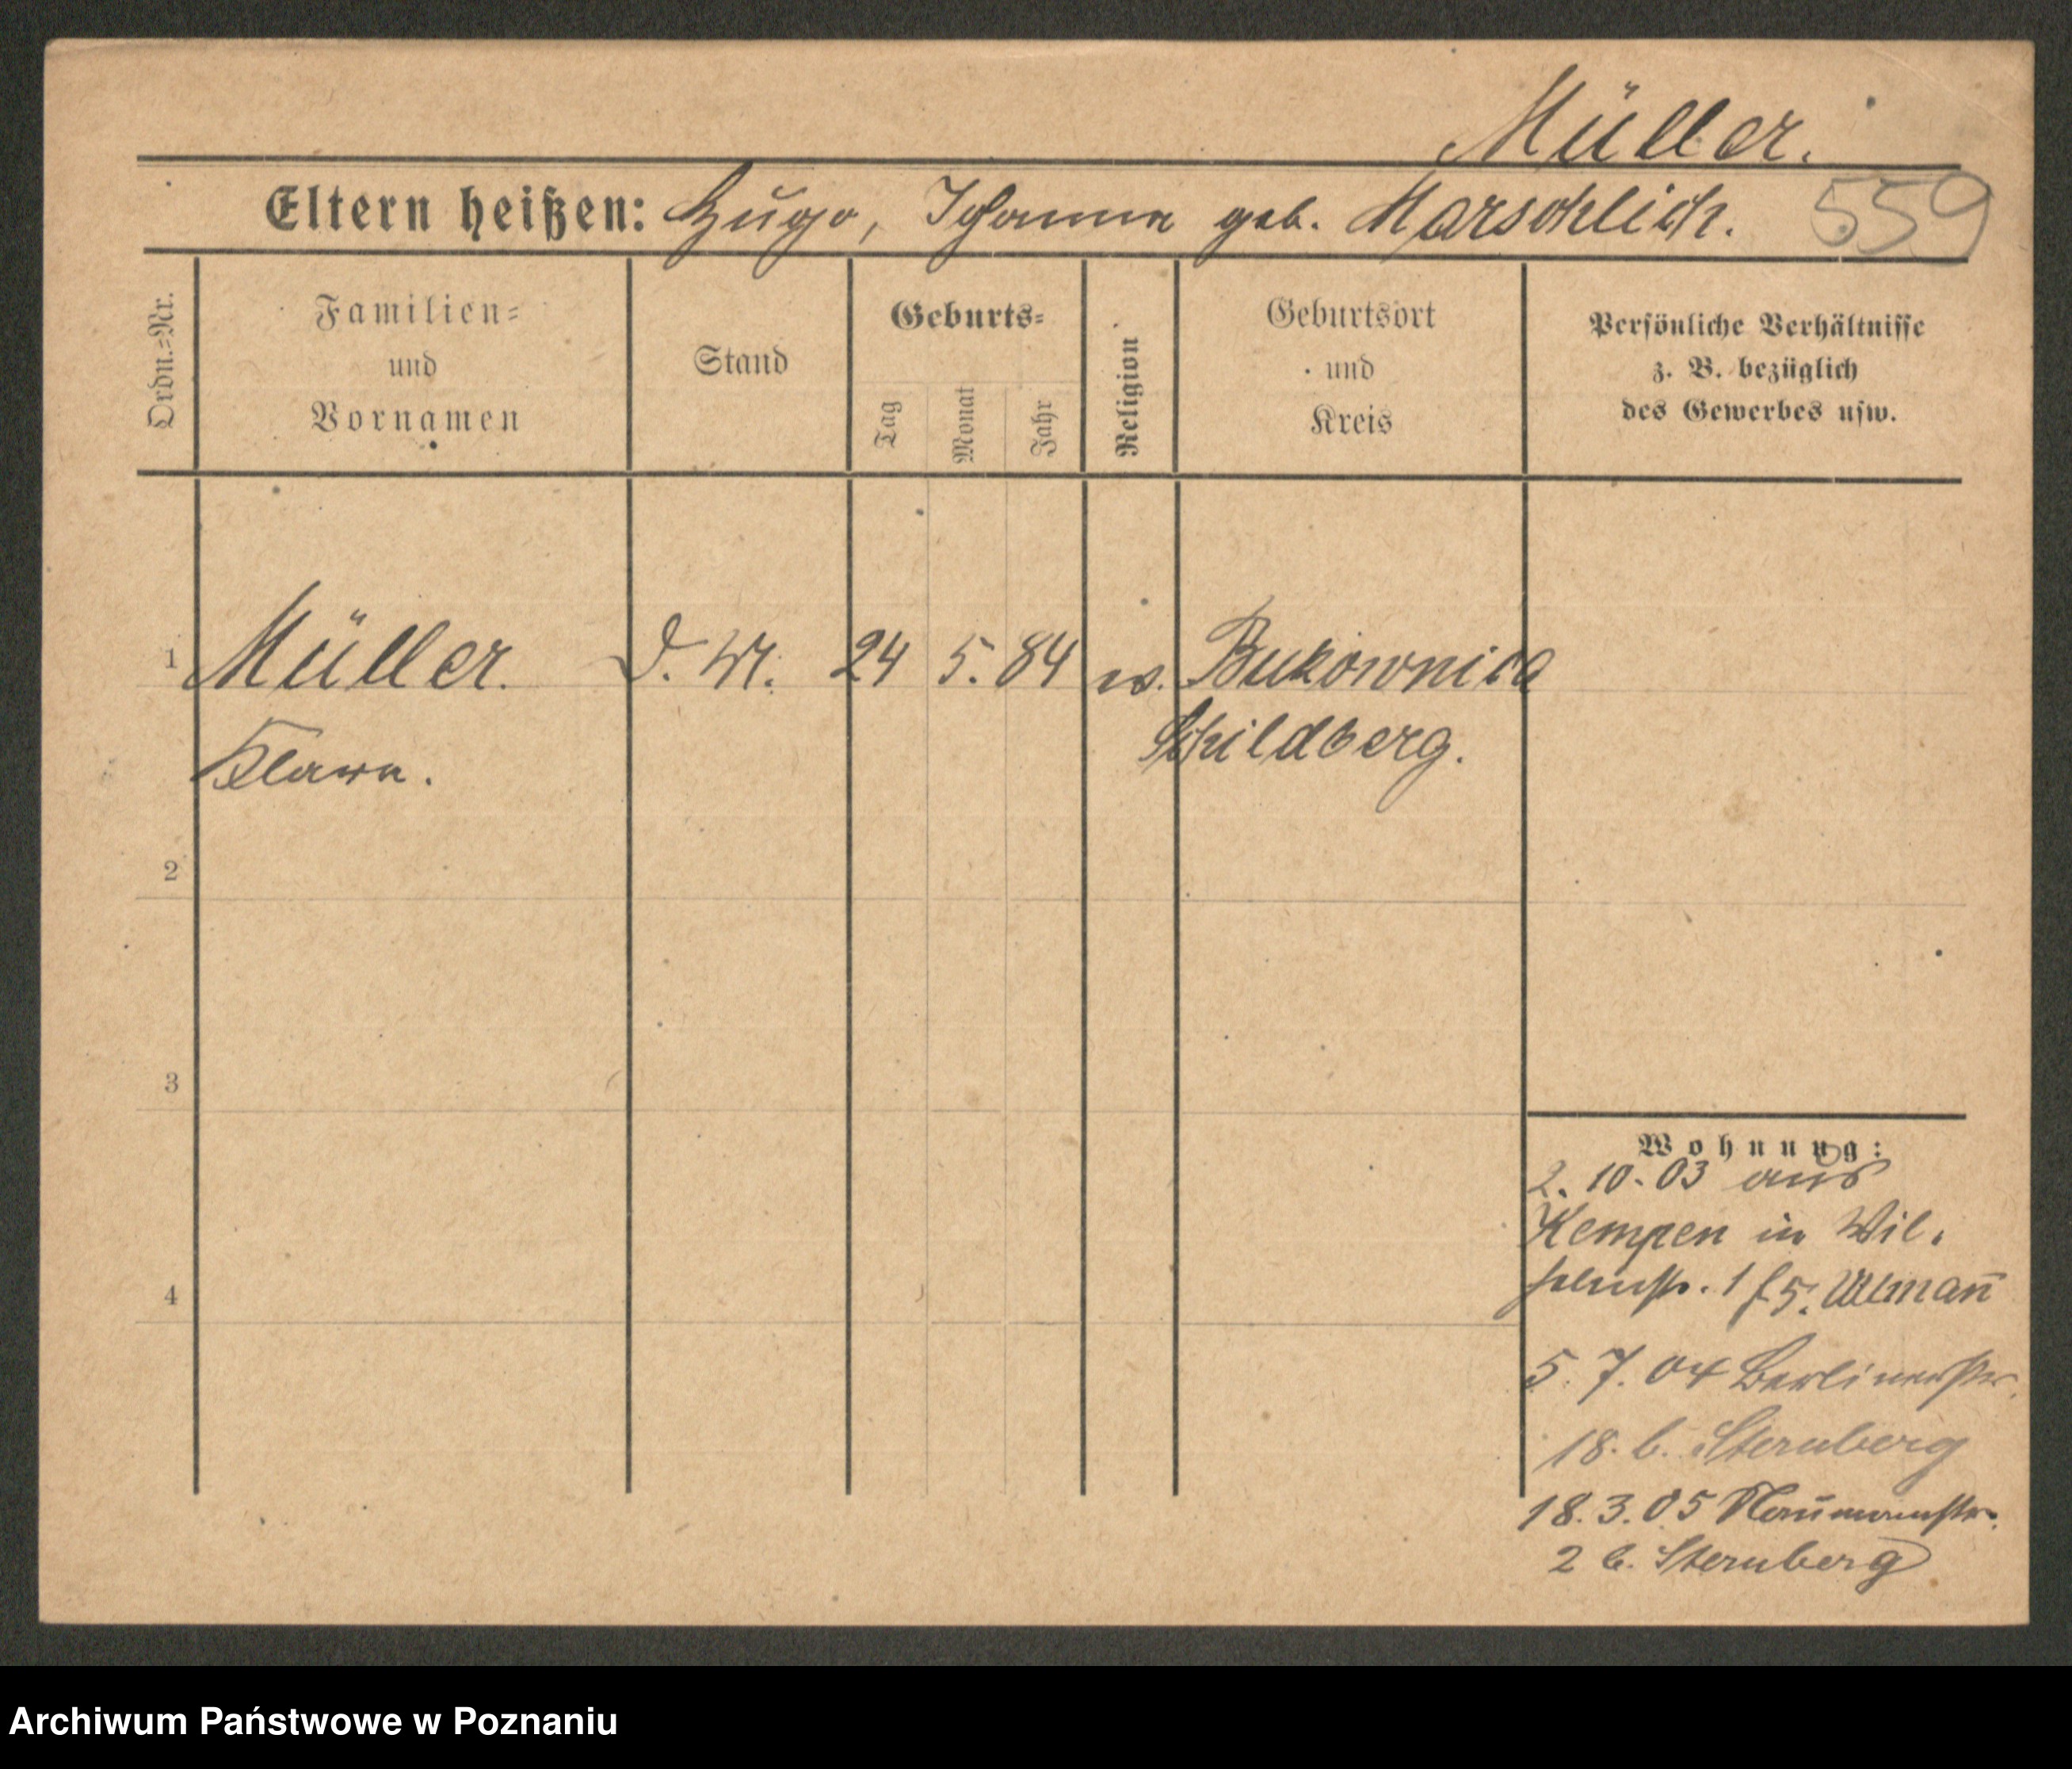 Müller.
Eltern heißen: Hugo, Johanna geb. Marschlich. 559
Ordn.-Nr.
Familien-
und
Vornamen
Stand
Geburts-
Tag
Monat
Jahr
Religion
Geburtsort
und
Kreis
Persönliche Verhältnisse
z. B. bezüglich
des Gewerbes usw.
1 Müller. D. M. 24 5. 84 ev. Bukownica
Klara. Schildberg.
2
3
4
Wohnung:
2. 10. 03 aus
Kempen in Wil-
helmstr. 1 b. Ullmann
5. 7. 04 Berlinerstr.
18. b. Sternberg
18. 3. 05 Naumannstr.
2 b. Sternberg
Archiwum Państwowe w Poznaniu